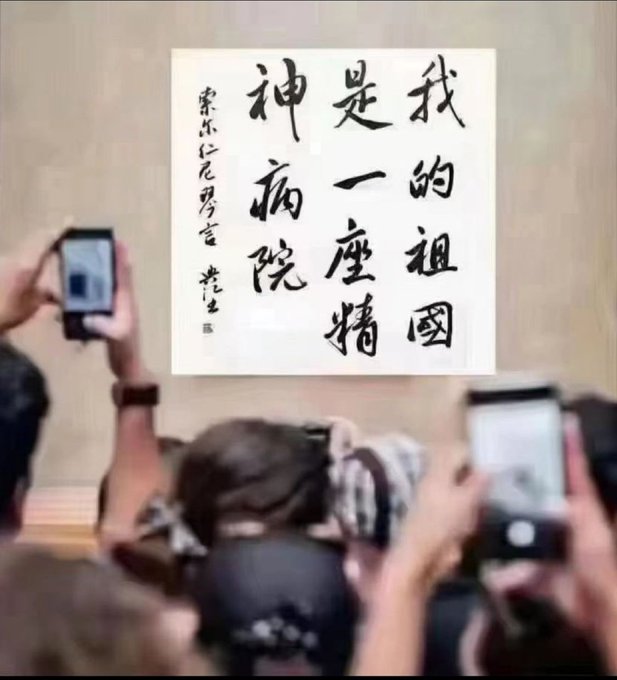 我的祖國
是一座精
神病院
索尔仁尼琴言